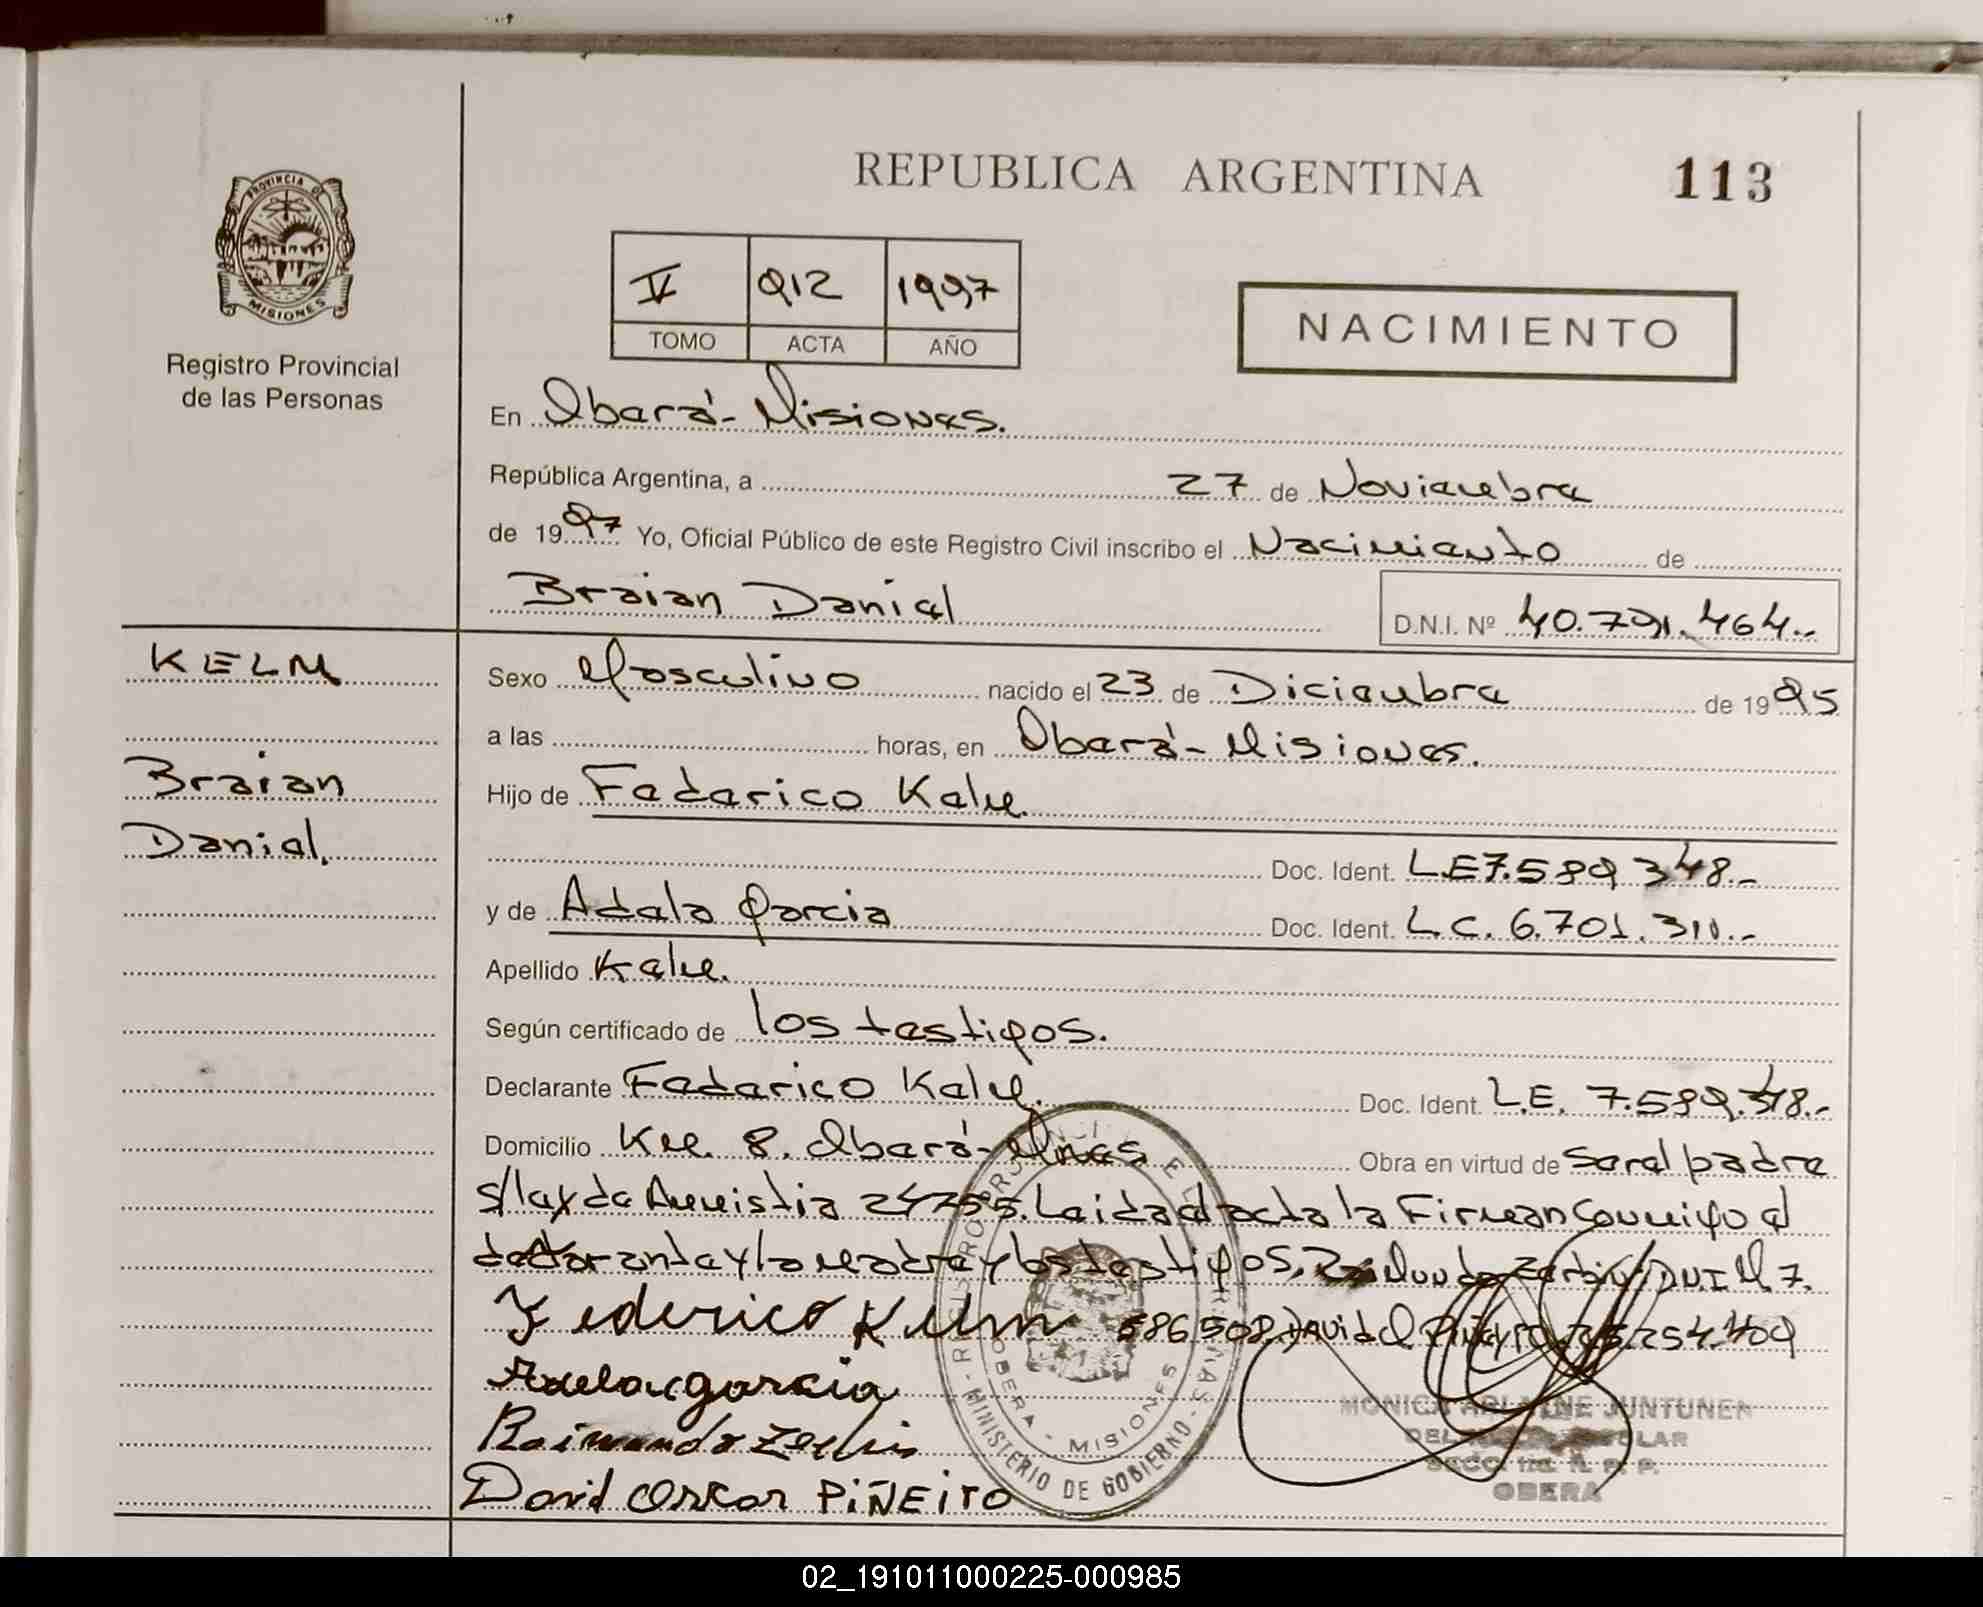 REPUBLICA ARGENTINA
113
PROVINCIA DE
MISIONES
Registro Provincial
de las Personas
V 912 1997
TOMO ACTA AÑO
NACIMIENTO
En Oberá - Misiones.
República Argentina, a 27 de Noviembre
de 1997 Yo, Oficial Público de este Registro Civil inscribo el Nacimiento de
Braian Daniel
D.N.I. Nº 40.791.464.-
KELM
Braian
Daniel.
Sexo Masculino nacido el 23 de Diciembre de 1995
a las horas, en Oberá - Misiones.
Hijo de Federico Kelm.
Doc. Ident. L.E 7.589 348.-
y de Adela Garcia Doc. Ident. L.C. 6.701.311.-
Apellido Kelm.
Según certificado de los testigos.
Declarante Federico Kelm. Doc. Ident. L.E. 7.589.348.-
Domicilio Km. 8. Oberá - Mnes. Obra en virtud de ser el padre
s/ley de Amnistia 24755. Leida el acta la Firman conmigo el
declarante y la madre y los testigos, DNI M 7.
586 508, David O Piñeyro 25.254.409
Federico Kelm
Adela garcia
Raimundo
David Oscar PIÑEIRO
MINISTERIO DE GOBIERNO
OBERA - MISIONES
MONICA JUNTUNEN
OBERA
02_191011000225-000985